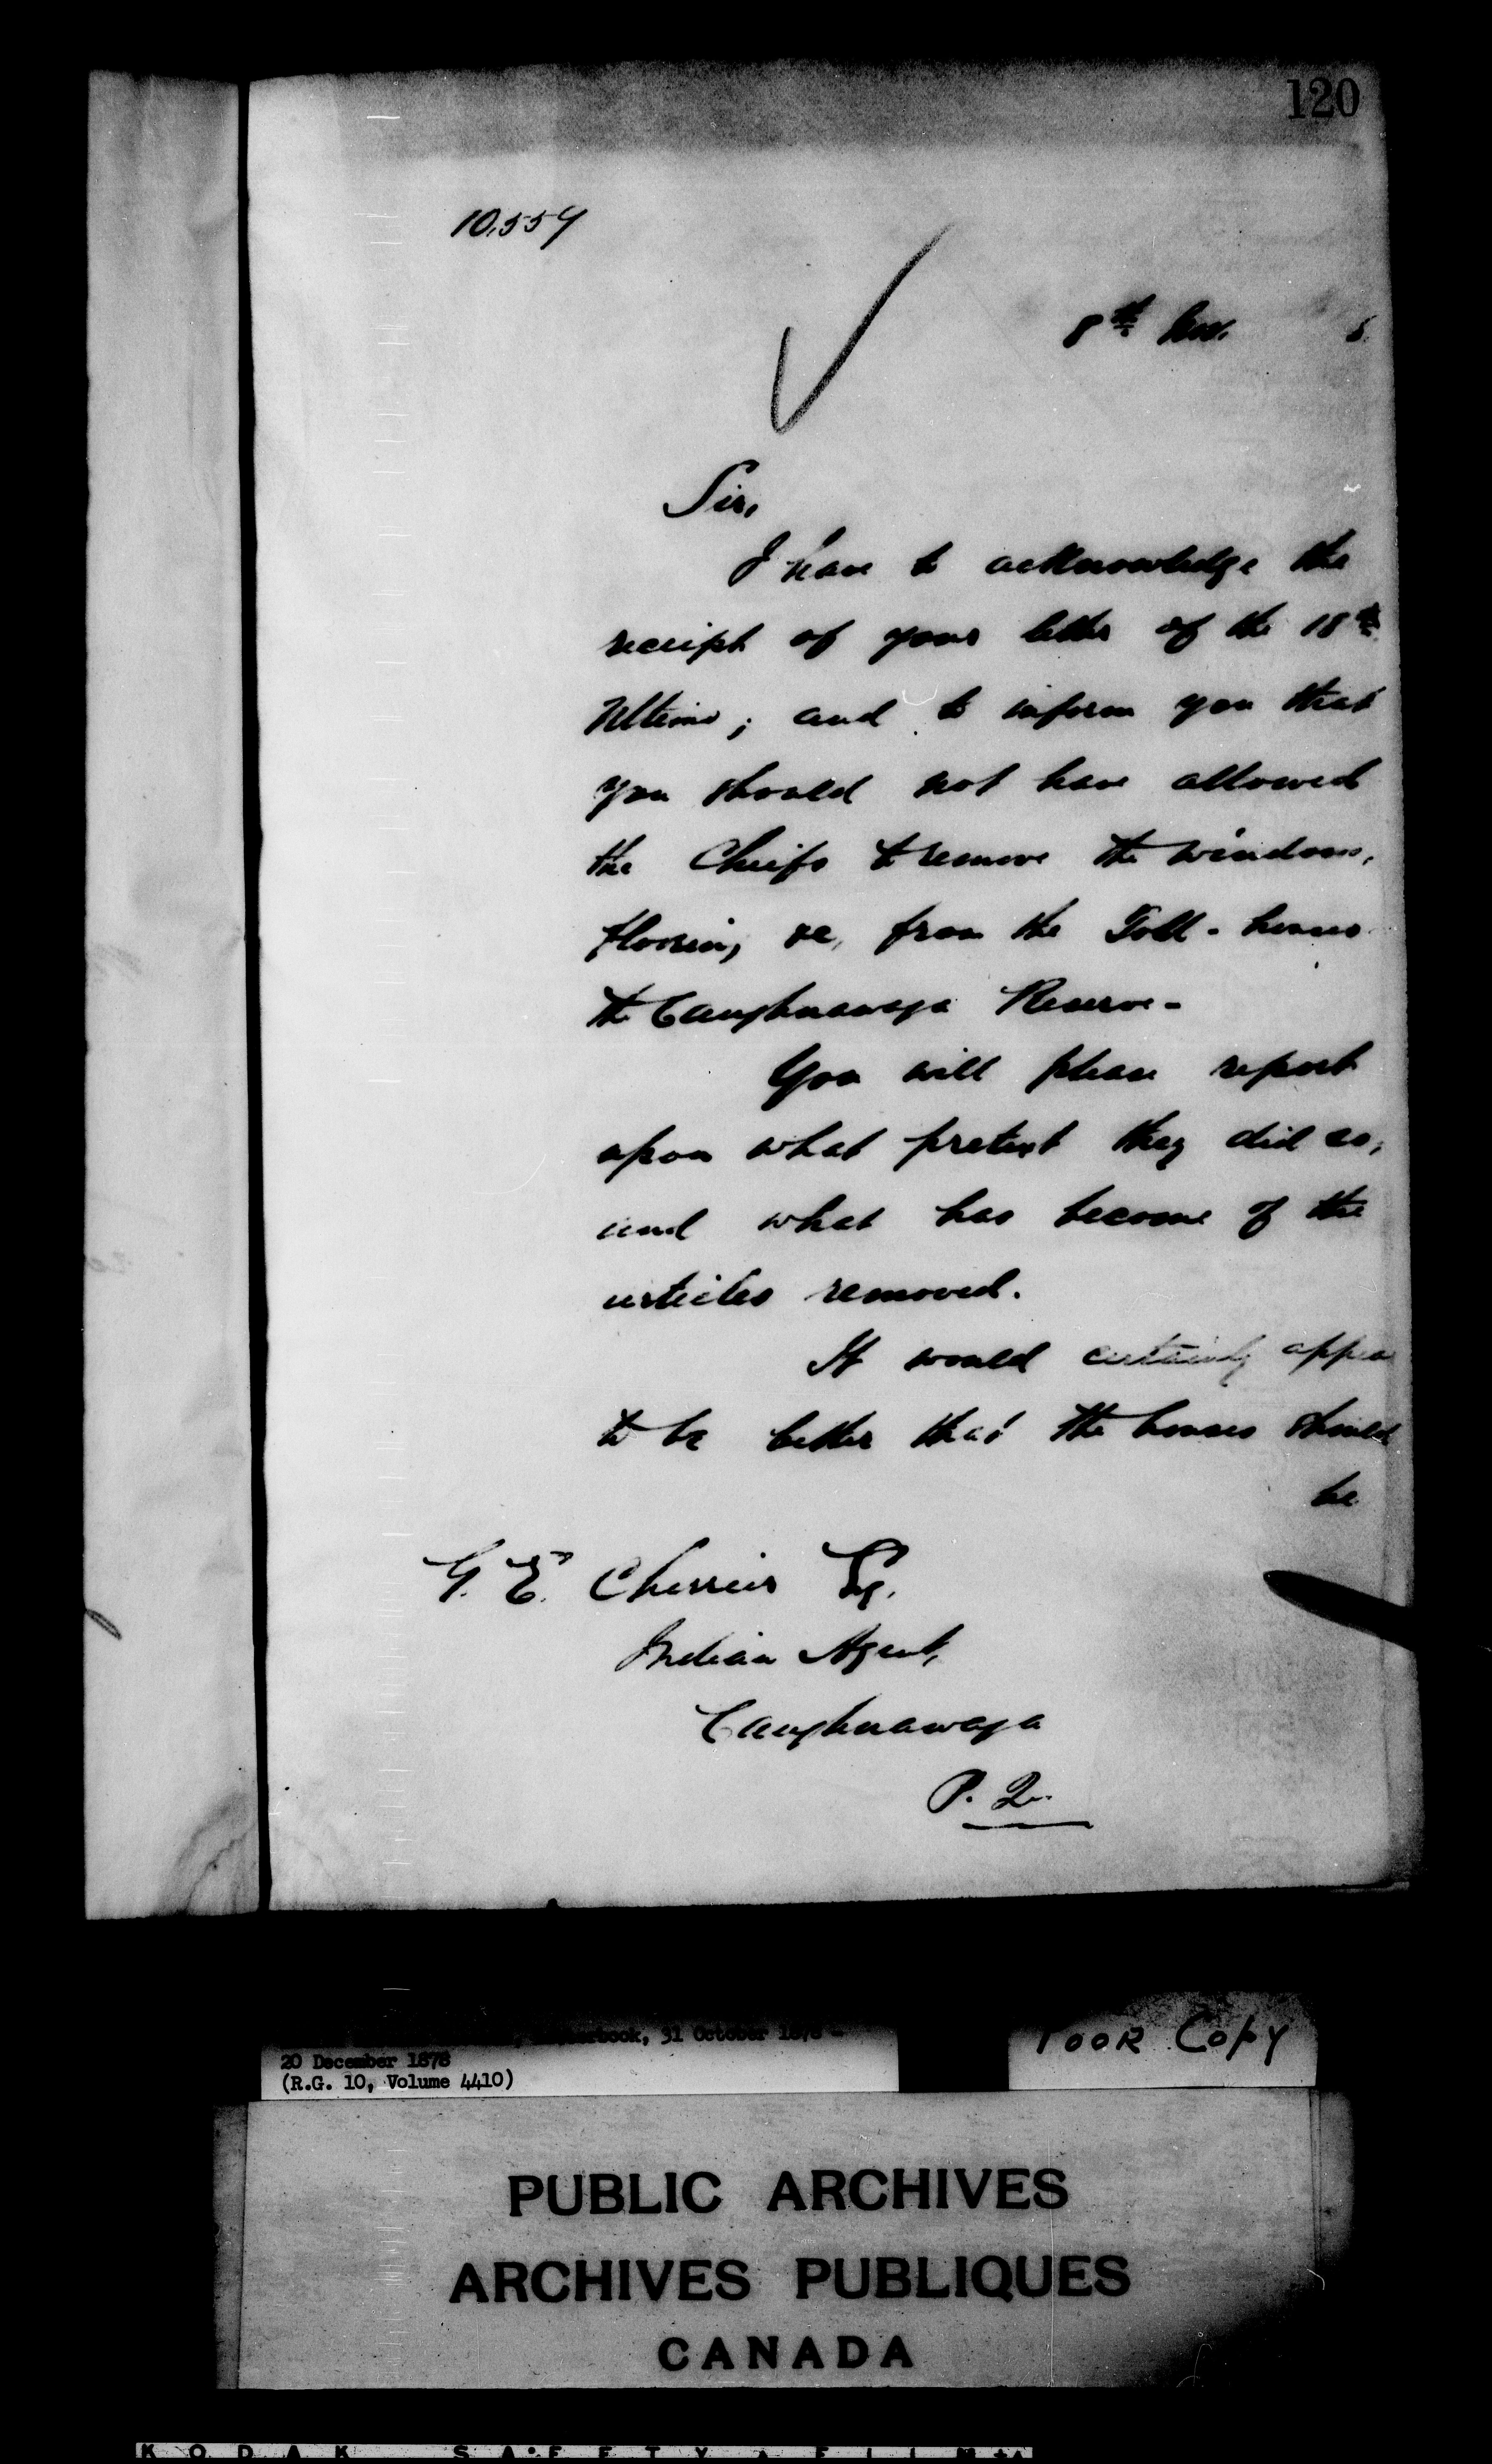 120
10,559
8th Nov. 8
Sir,
I have to acknowledge the
receipt of your letter of the 18th
Ultimo; and to inform you that
you should not have allowed
the Chiefs to remove the windows,
flooring &c, from the Toll-houses
the Caughnawaga Reserve-
You will please report
upon what pretext they did so,
and what has become of the
articles removed.
It would certainly appear
to be better that the houses should
be
G. E. Cherrier Esq.
Indian Agent,
Caughnawaga
P. Q.
31 October 1878 -
20 December 1878
(R.G. 10, Volume 4410)
Poor Copy
PUBLIC ARCHIVES
ARCHIVES PUBLIQUES
CANADA
KODAK SAFETY FILM